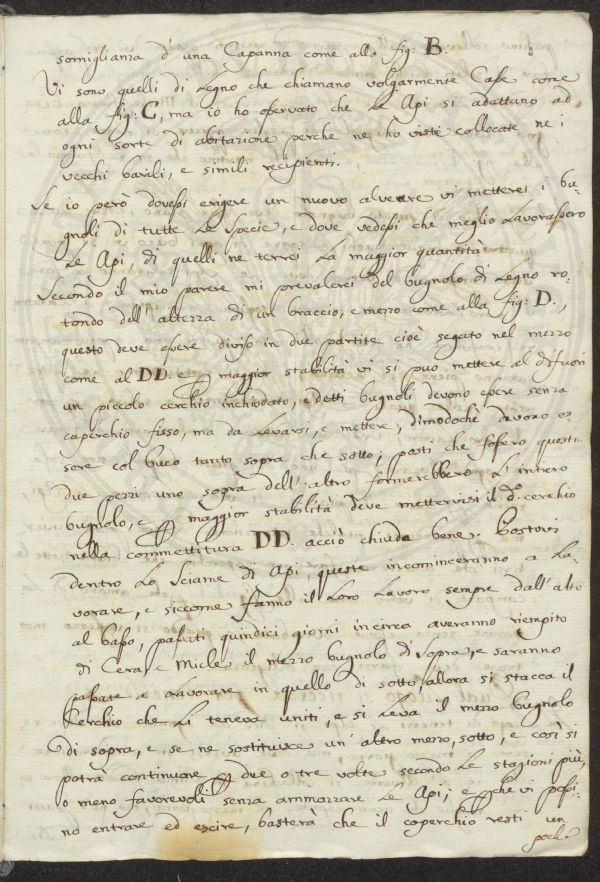 somiglianza d'una Capanna come alla fig: B.
Vi sono quelli di Legno che chiamano volgarmente Case come
alla fig: C, ma io ho osservato che Le Api si adattano ad
ogni sorte di abitazione perche ne ho viste collocate ne i
vecchi barili, e simili recipienti.
Se io però dovessi erigere un nuovo alveare vi metterei i bu-
gnoli di tutte Le specie, e dove vedessi che meglio Lavorassero
Le Api, di quelli ne terrei La maggior quantità
Secondo il mio parere mi prevalerei del bugnolo di Legno ro-
tondo dell'altezza di un braccio, e mezzo come alla fig: D.,
questo deve essere diviso in due partite cioè segato nel mezzo
come al DD. e maggior stabilità vi si puo mettere al di fuori
un piccolo cerchio inchiodato, e detti bugnoli devono essere senza
caperchio fisso, ma da Levarsi, e mettere, dimodochè devono es
sere col buco tanto sopra che sotto; posti che fossero questi
due pezzi uno sopra dell'altro formerebbero L'intiero
bugnolo, e maggior stabilità deve mettervisi il do. cerchio
nella commettitura DD. acciò chiuda bene. Postovi
dentro Lo Sciame di Api, queste incominceranno a La-
vorare, e siccome fanno il Loro Lavoro sempre dall'alto
al basso, passati quindici giorni incirca averanno riempito
di Cera, e Miele il mezzo bugnolo di sopra, e saranno
passate a Lavorare in quello di sotto, allora si stacca il
Cerchio che Li teneva uniti, e si Leva il mezzo bugnolo
di sopra, e se ne sostituisce un'altro mezzo, sotto, e così si
potrà continuare due o tre volte secondo Le stagioni più,
o meno favorevoli senza ammazzare Le Api; e che vi possi-
no entrare ed escire, basterà che il coperchio resti un
poch